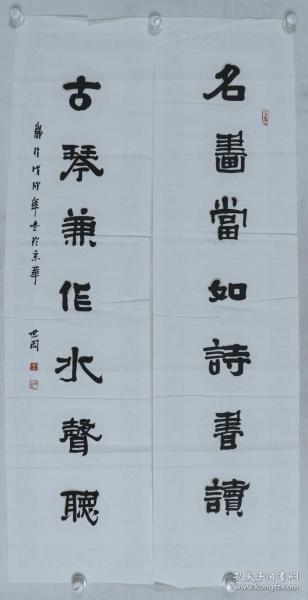 名畫當如詩書讀
古琴兼作水聲聽
歲於戊戌年冬於京華
世閣
孔夫子旧书网